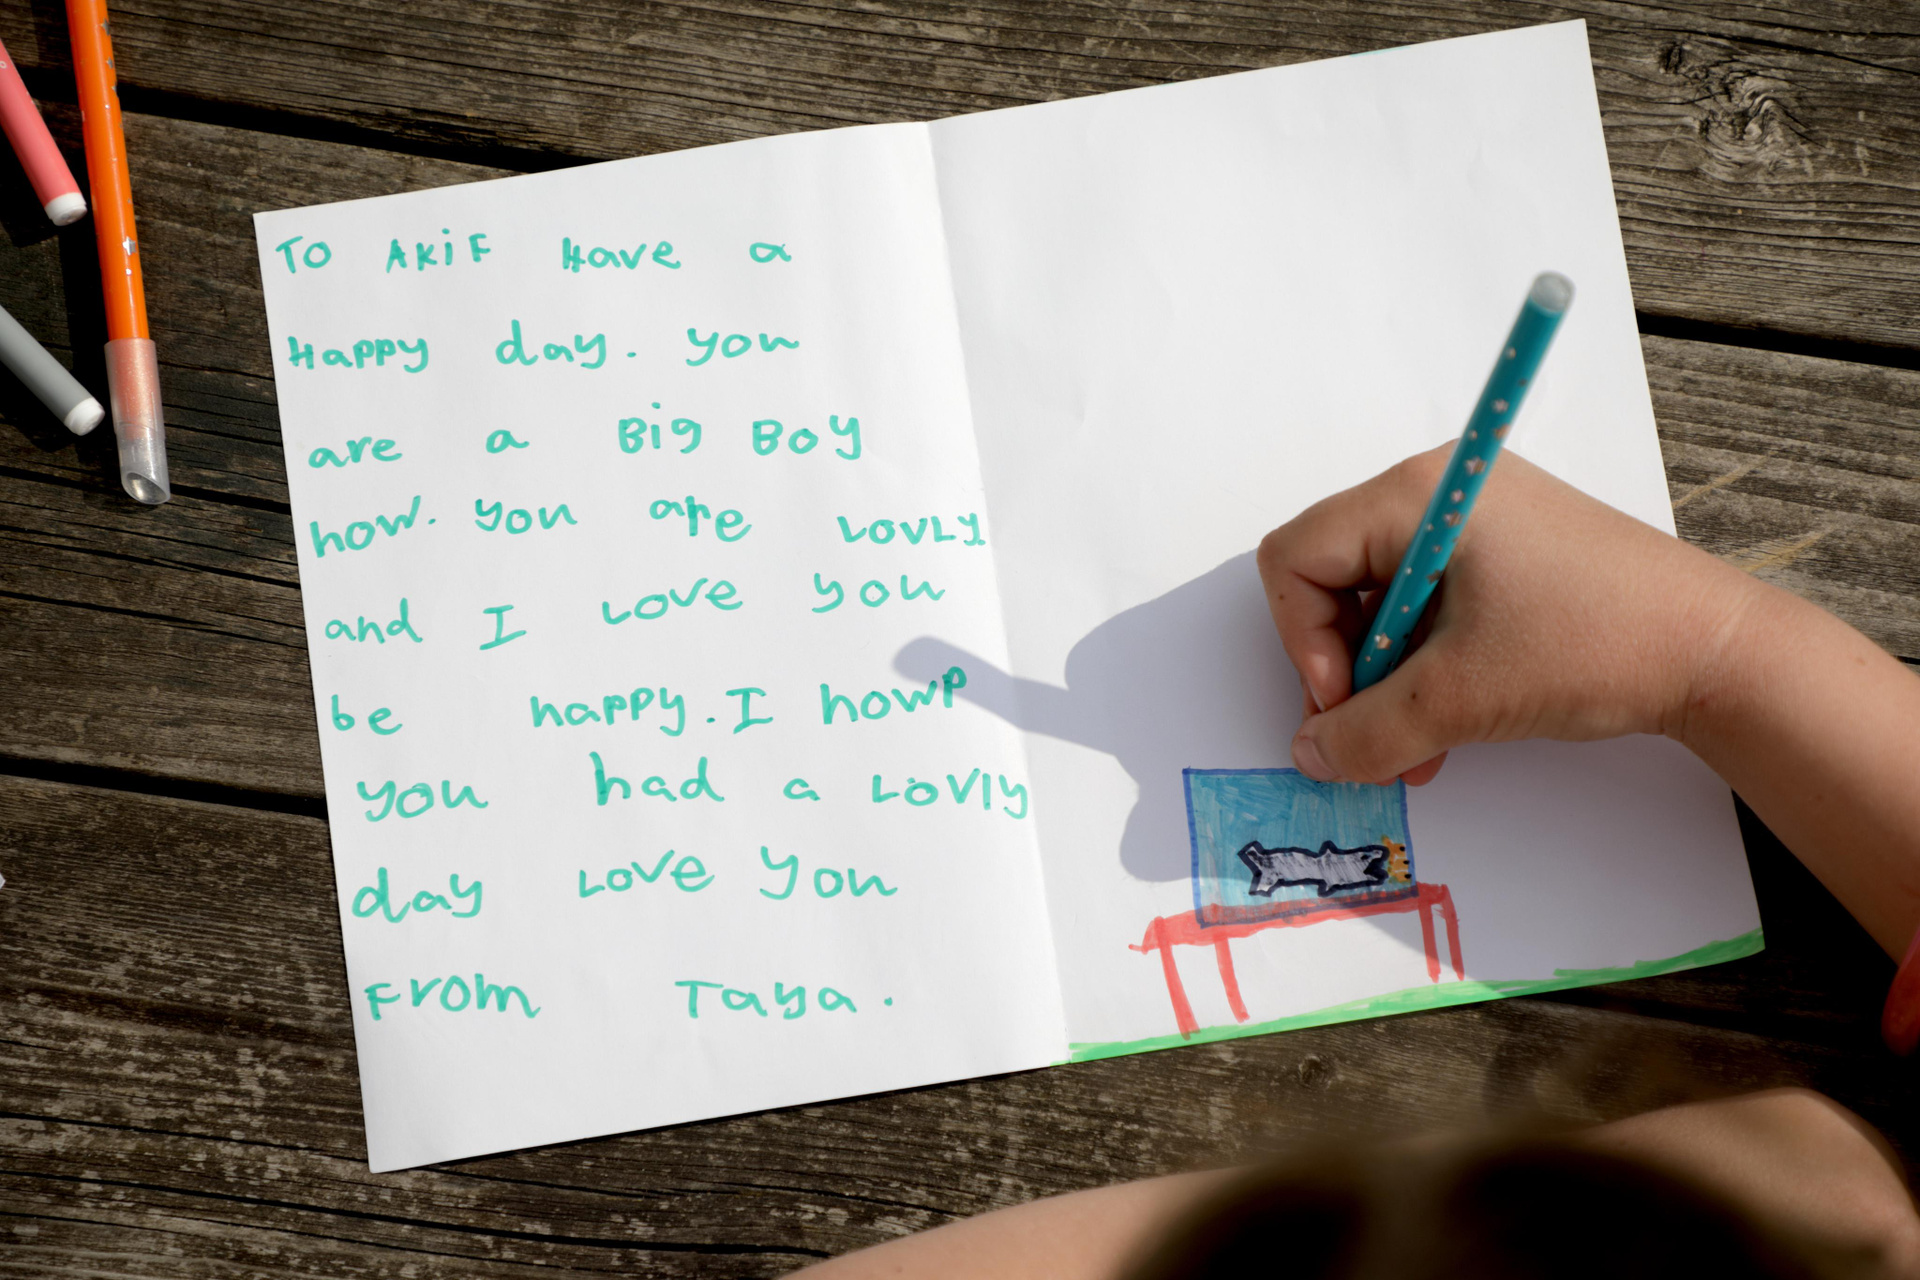 TO AKiF Have a
Happy day. you
are a Big Boy
how. you are LovLy
and I Love you
be happy. I howp
you had a Lovly
day Love you
From Taya.